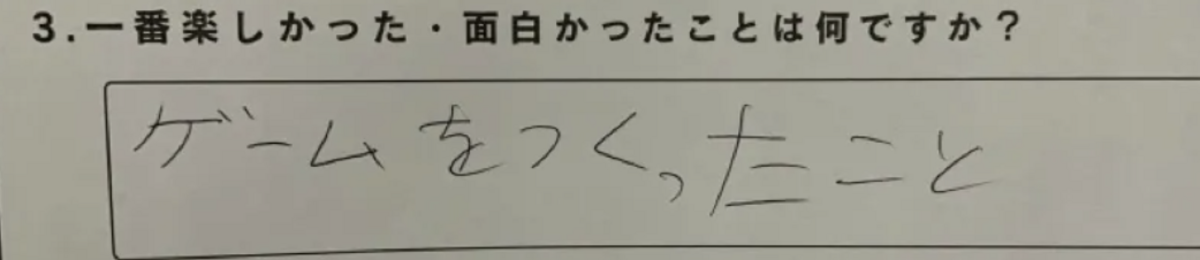 3.一番楽しかった・面白かったことは何ですか？
ゲームをつくったこと